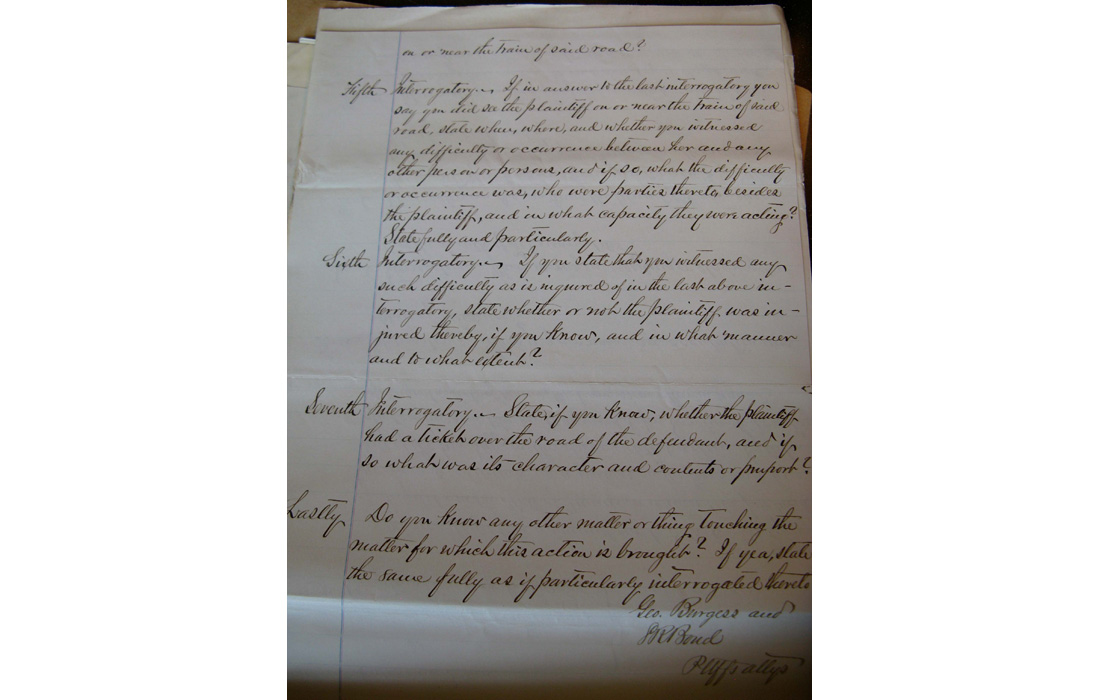 on or near the train of said road?
Fifth Interrogatory. If in answer to the last interrogatory you
say you did see the plaintiff on or near the train of said
road, state when, where, and whether you witnessed
any difficulty or occurrence between her and any
other person or persons, and if so, what the difficulty
or occurrence was, who were parties thereto, besides
the plaintiff, and in what capacity they were acting?
State fully and particularly.
Sixth Interrogatory. If you state that you witnessed any
such difficulty as is inquired of in the last above in-
terrogatory, state whether or not the plaintiff was in-
jured thereby, if you know, and in what manner
and to what extent?
Seventh Interrogatory. State, if you know, whether the plaintiff
had a ticket over the road of the defendant, and if
so what was its character and contents or purport?
Lastly Do you know any other matter or thing touching the
matter for which this action is brought? If yea, state
the same fully as if particularly interrogated thereto
Geo. Burgess and
Bond
Plffs attys